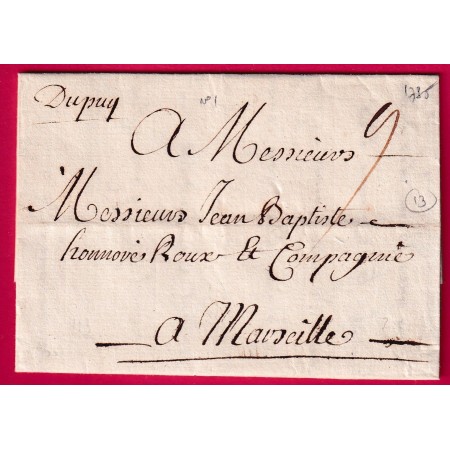 Dupuy
N° 1
1785
A Messieurs
9
13
Messieurs Jean Baptiste
honnoré Roux Et Compagnie
a Marseille